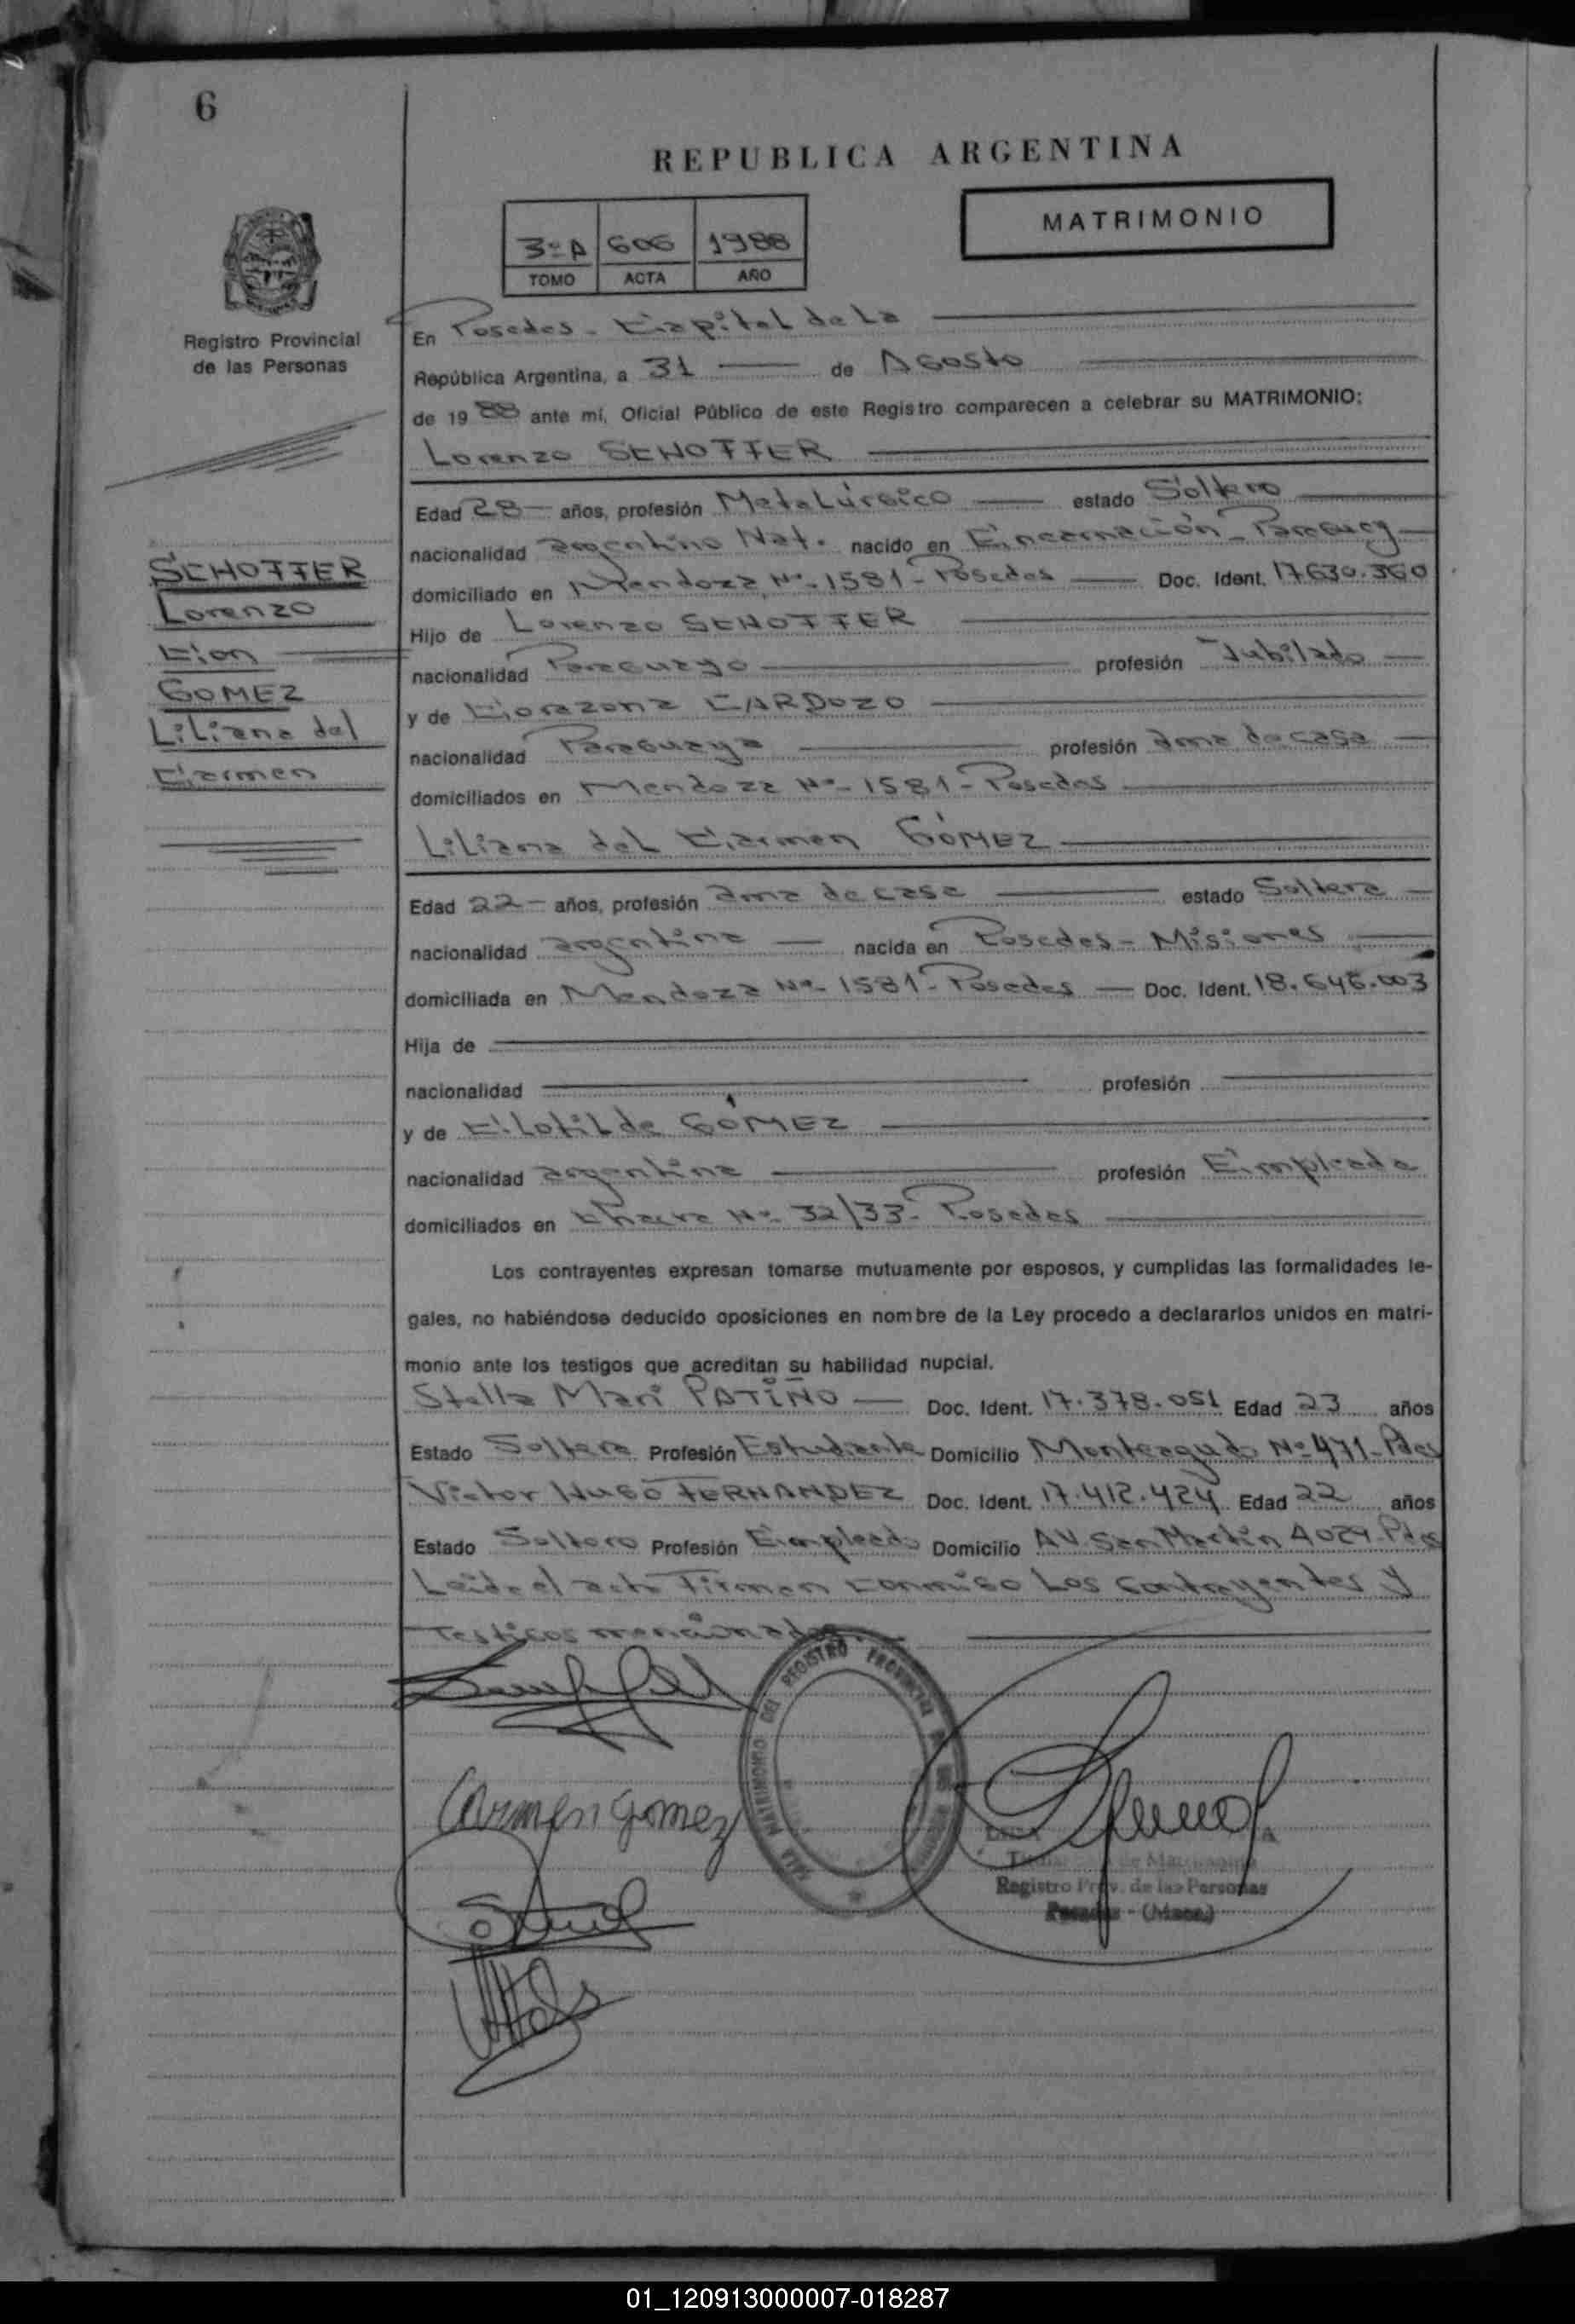 6
REPUBLICA ARGENTINA
MATRIMONIO
3º A 606 1988
TOMO ACTA AÑO
Registro Provincial
de las Personas
En Posadas - Capital de la
República Argentina, a 31 de Agosto
de 1988 ante mí, Oficial Público de este Registro comparecen a celebrar su MATRIMONIO:
Lorenzo SCHOFFER
Edad 28 años, profesión Metalúrgico estado Soltero
nacionalidad argentino Nat. nacido en Encarnación - Paraguay
domiciliado en Mendoza Nº 1581 - Posadas Doc. Ident. 17.630.360
Hijo de Lorenzo SCHOFFER
nacionalidad Paraguayo profesión Jubilado
y de Corazona CARDOZO
nacionalidad Paraguaya profesión ama de casa
domiciliados en Mendoza Nº 1581 - Posadas
Liliana del Carmen GÓMEZ
Edad 22 años, profesión ama de casa estado Soltera
nacionalidad argentina nacida en Posadas - Misiones
domiciliada en Mendoza Nº 1581 - Posadas Doc. Ident. 18.645.003
Hija de
nacionalidad profesión
y de Clotilde GÓMEZ
nacionalidad argentina profesión Empleada
domiciliados en Chacra Nº 32/33 - Posadas
Los contrayentes expresan tomarse mutuamente por esposos, y cumplidas las formalidades le-
gales, no habiéndose deducido oposiciones en nombre de la Ley procedo a declararlos unidos en matri-
monio ante los testigos que acreditan su habilidad nupcial.
Stella Mari PATIÑO Doc. Ident. 17.378.051 Edad 23 años
Estado Soltera Profesión Estudiante Domicilio Monteagudo Nº 471 - Pdas
Victor Hugo FERNANDEZ Doc. Ident. 17.412.424 Edad 22 años
Estado Soltero Profesión Empleado Domicilio AV. San Martín 4024 - Pdas
Leida el acta Firman conmigo Los contrayentes y
Testigos mencionados.
SCHOFFER
Lorenzo
Con
GOMEZ
Liliana del
Carmen
Carmen Gomez
SALA MATRIMONIO DEL REGISTRO PROVINCIAL
Registro Prov. de las Personas
Posadas - (Mnes.)
01_120913000007-018287